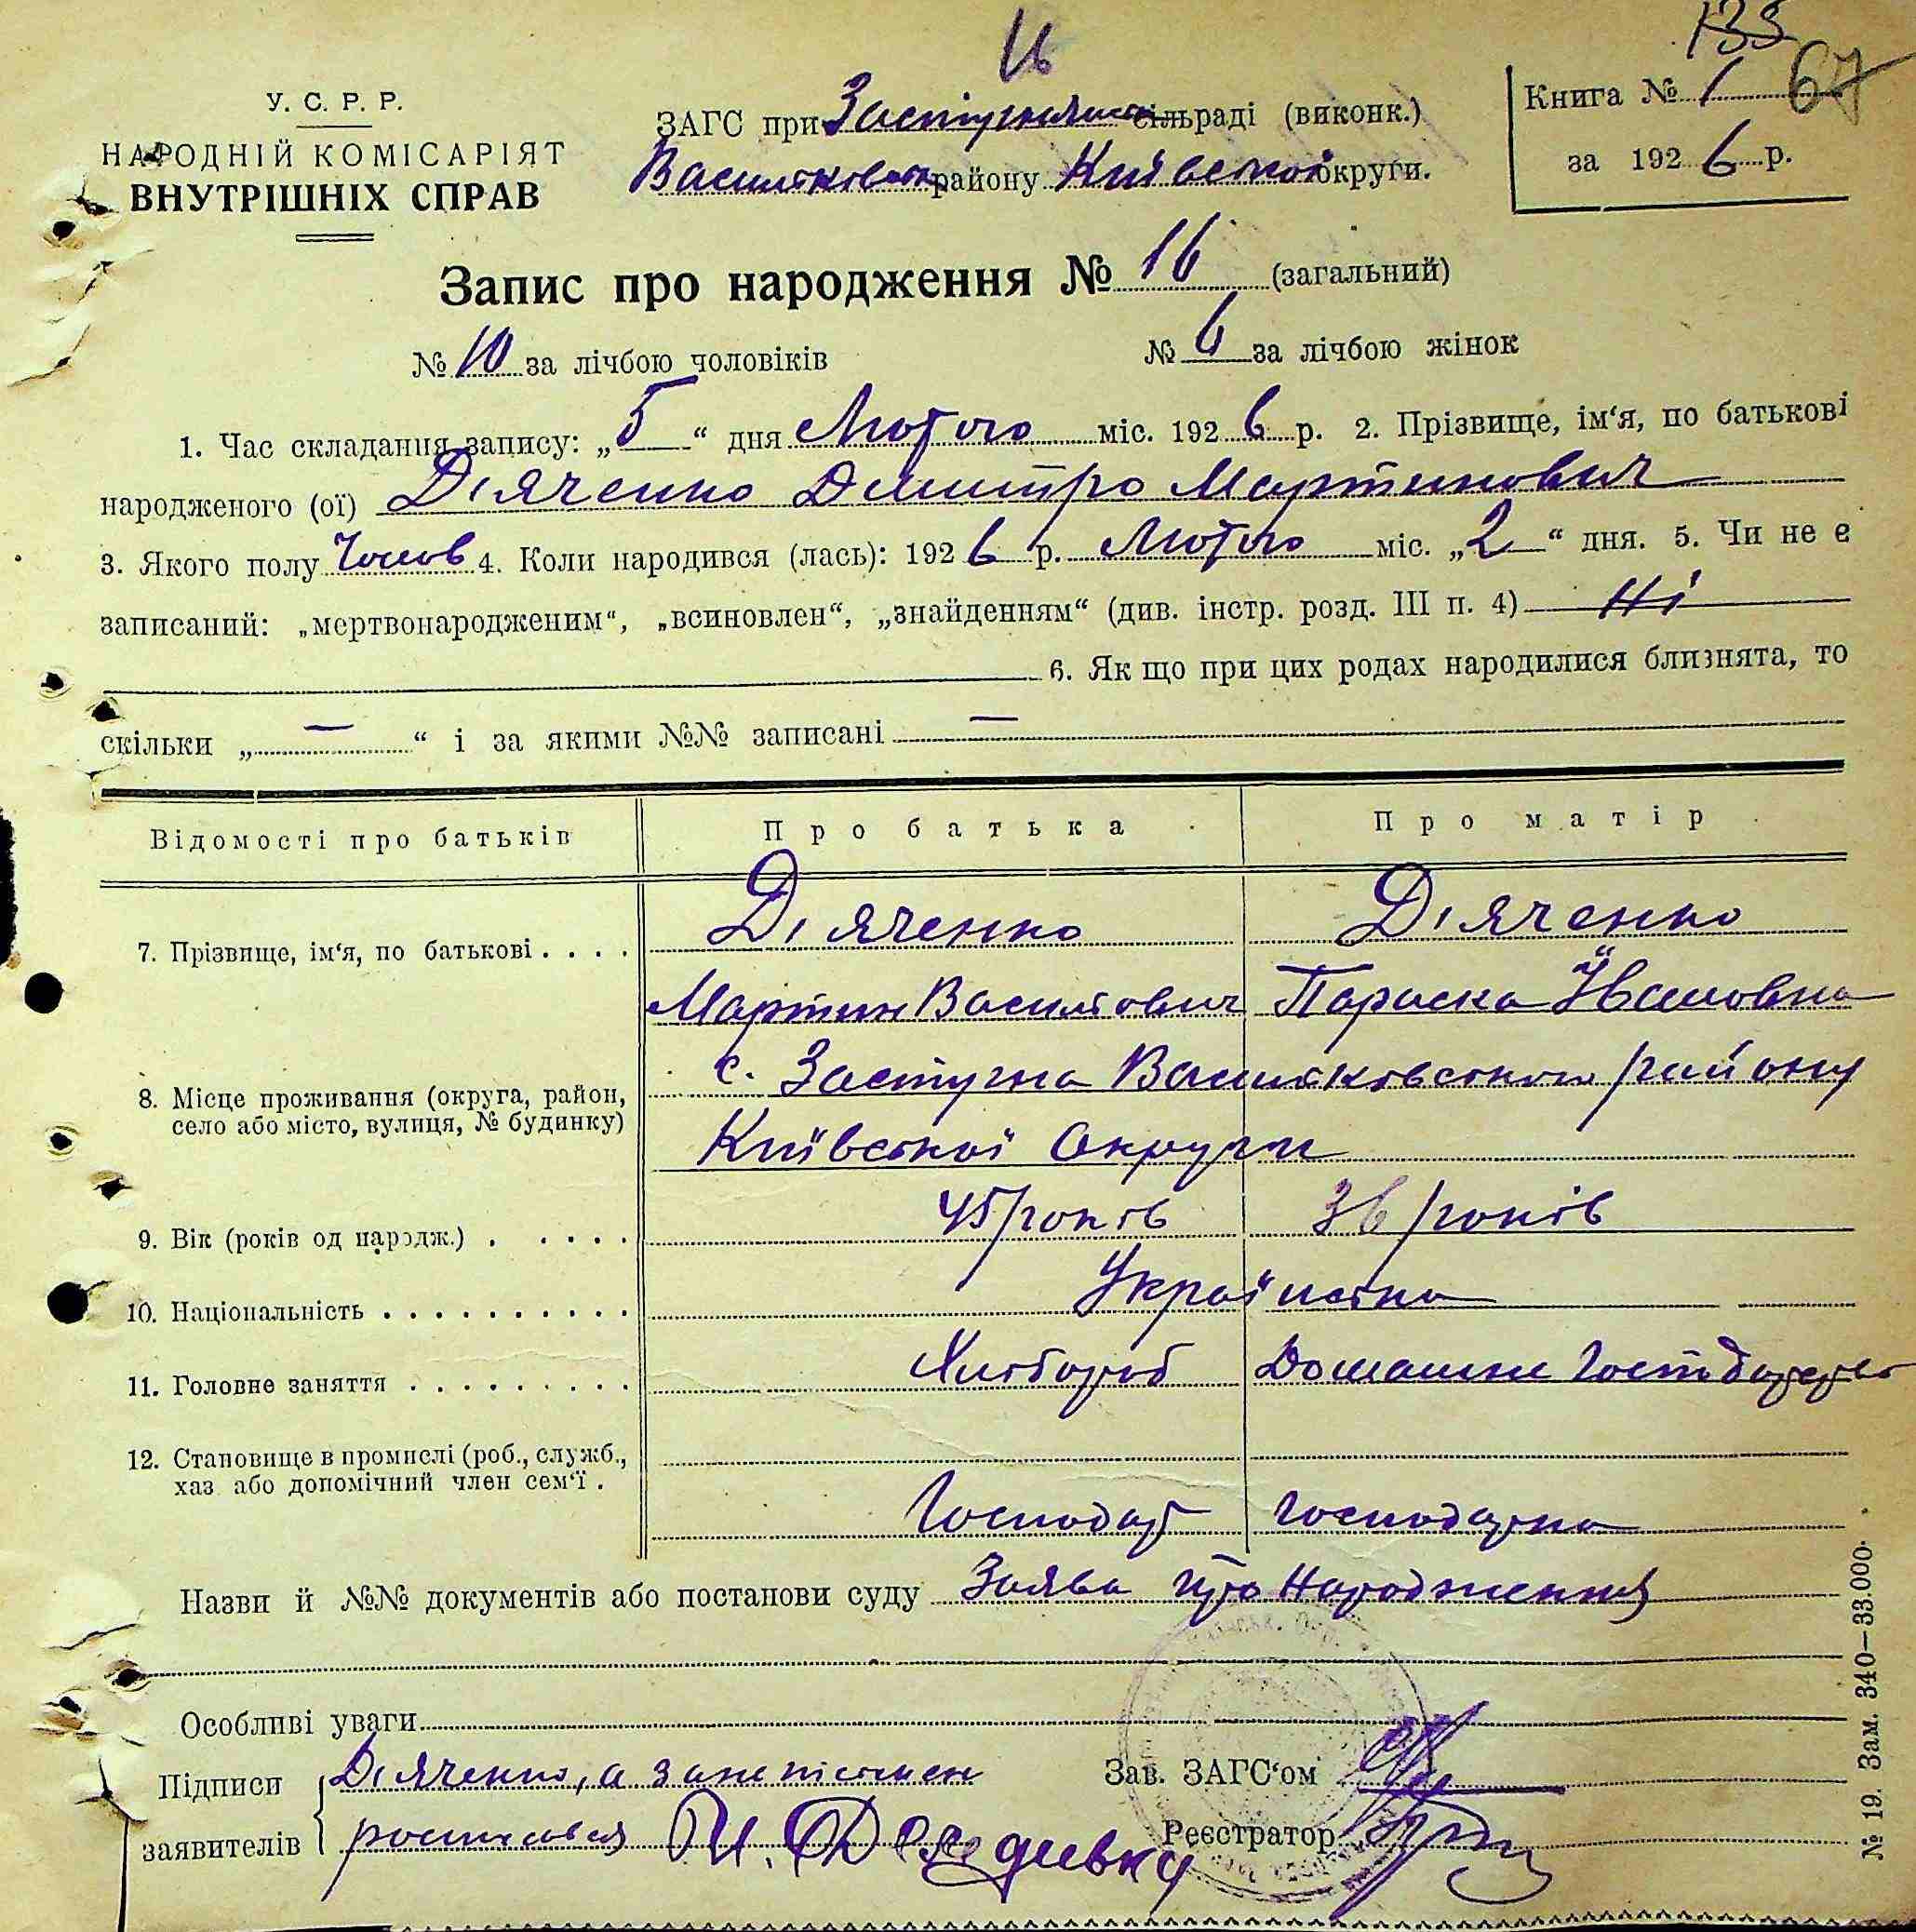 16
133
67
У. С. Р. Р.
НАРОДНІЙ КОМІСАРІЯТ
ВНУТРІШНІХ СПРАВ
ЗАГС при сільраді (виконк.)
району Київської округи.
Книга № 1
за 1926 р.
Запис про народження № 16 (загальний)
№ 10 за лічбою чоловіків № 6 за лічбою жінок
1. Час складання запису: „5“ дня Лютого міс. 1926 р. 2. Прізвище, ім‘я, по батькові
народженого (ої) Діяченко Димитро Мартинович
3. Якого полу Чолов 4. Коли народився (лась): 1926 р. Лютого міс. „2“ дня. 5. Чи не є
записаний: „мертвонародженим“, „всиновлен“, „знайденням“ (див. інстр. розд. III п. 4) Ні
6. Як що при цих родах народилися близнята, то
скільки „—“ і за якими №№ записані —
Відомості про батьків Про батька Про матір
7. Прізвище, ім‘я, по батькові . . . . Діяченко Діяченко
Мартин Василович Параска Йвановна
8. Місце проживання (округа, район, село або місто, вулиця, № будинку) с. Застугна Васильковського району
Київської Округи
9. Вік (років од народж.) . . . . . 45 років 36 років
10. Національність . . . . . . . . . . Українська
11. Головне заняття . . . . . . . . . Хлібороб Домашнє
12. Становище в промислі (роб., служб.,
хаз або допомічний член сем‘ї .
Господар Господарка
Назви й №№ документів або постанови суду Заява про Народження
Особливі уваги
Підписи Діяченко, а за неписьмен
Зав. ЗАГС‘ом
заявителів росписався
Реєстратор
№ 19. Зам. 340—33.000.